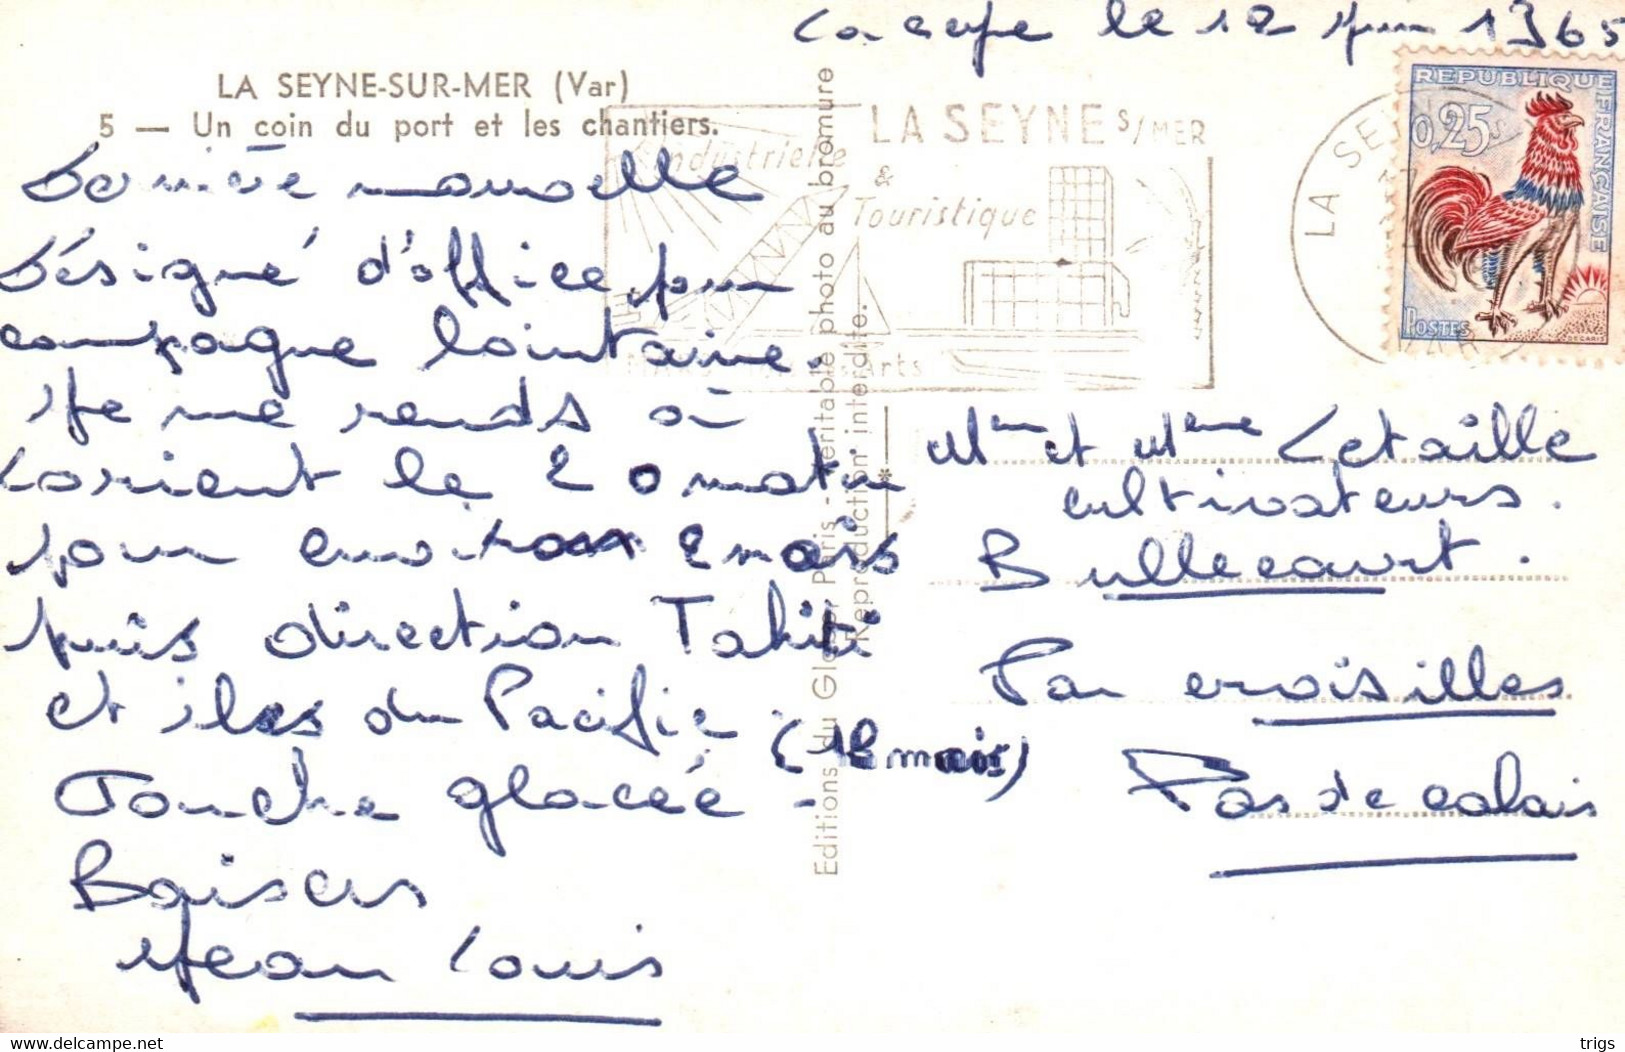 le 12 Juin 1965
LA SEYNE-SUR-MER (Var)
5 — Un coin du port et les chantiers.
Dernière nouvelle
Désigné d'office pour
campagne lointaine.
Je me rends à
Lorient le 20 matin
pour environ 2 mois
puis direction Tahiti
et iles du Pacific.
(18 mois)
Touche glacée -
Baisers
Jean Louis
LA SEYNE S/MER
Industrielle
&
Touristique
Arts
Editions du Globe, Paris - Véritable photo au bromure
Reproduction interdite.
LA SEYNE
VAR
REPUBLIQUE FRANÇAISE
0,25
POSTES
DECARIS
Mr et Mme Letaille
cultivateurs.
Bullecourt.
Par croisilles
Pas de calais
delcampe.net
trigs